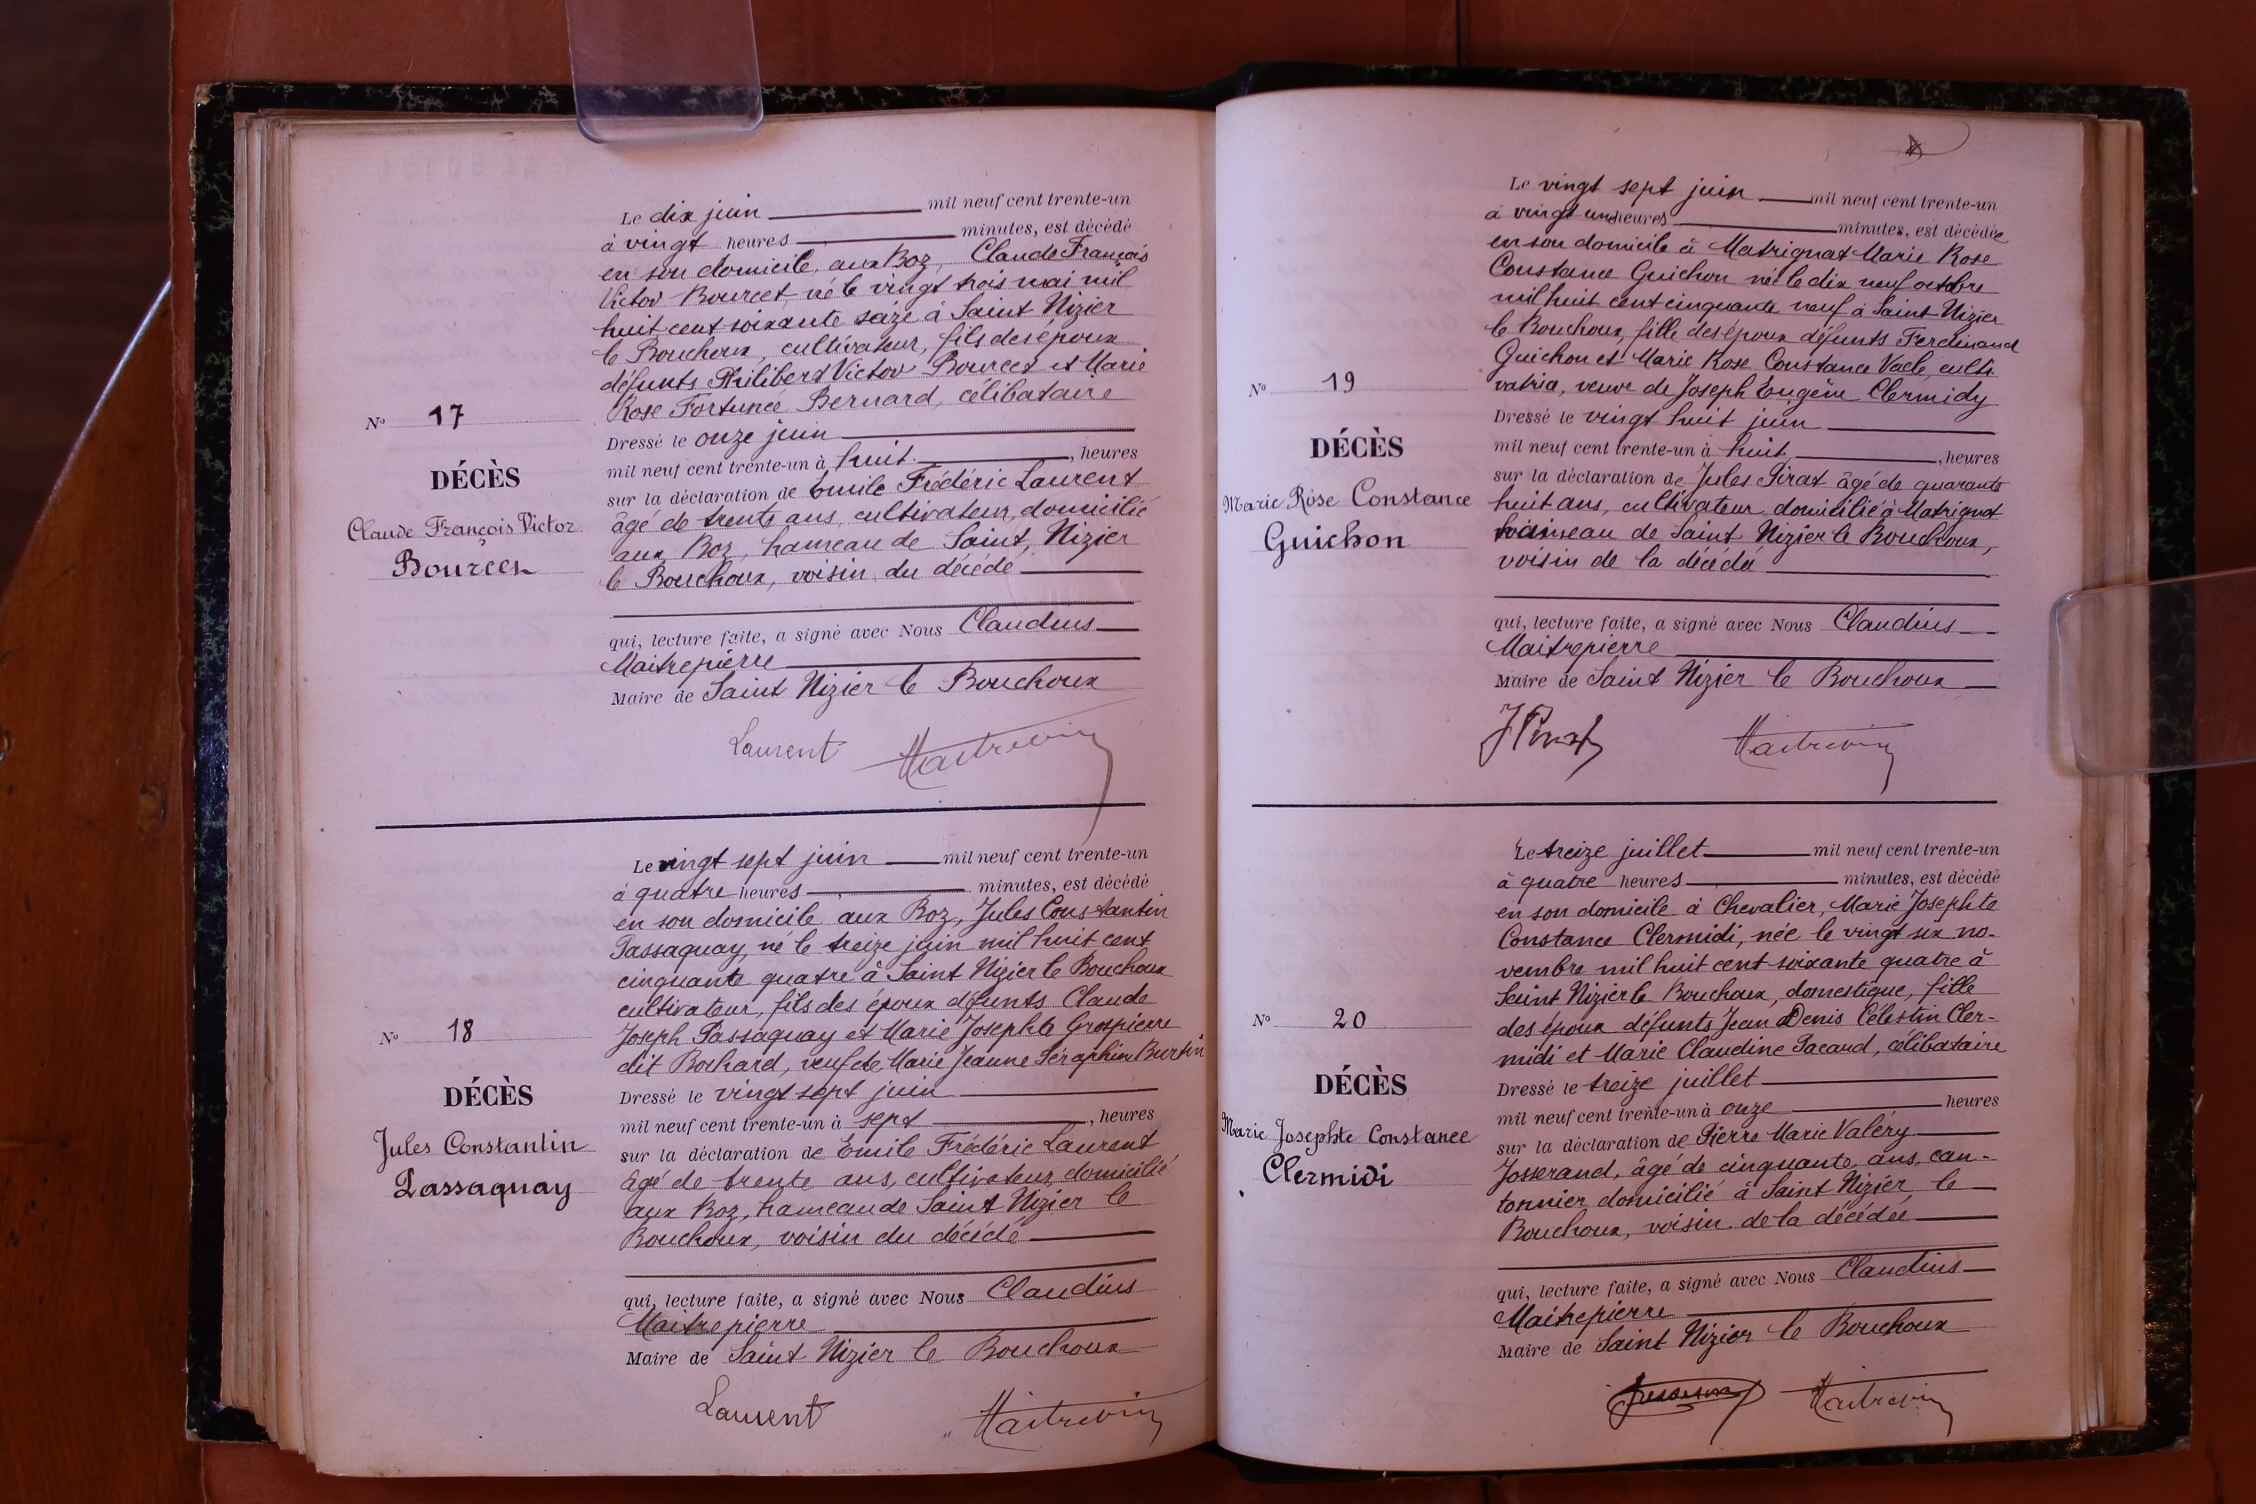 Le dix juin mil neuf cent trente-un
à vingt heures minutes, est décédé
en son domicile, aux Boz, Claude François
Victor Bourcet, né le vingt trois mai mil
huit cent soixante seize à Saint Nizier
le Bouchoux, cultivateur, fils des époux
défunts Philibert Victor Bourcet et Marie
Rose Fortunée Bernard, célibataire
Nº 17
DÉCÈS
Claude François Victor
Bourcet
Dressé le onze juin
mil neuf cent trente-un à huit, heures
sur la déclaration de Emile Frédéric Laurent
âgé de trente ans, cultivateur, domicilié
aux Boz, hameau de Saint, Nizier
le Bouchoux, voisin du décédé
qui, lecture faite, a signé avec Nous Claudius
Maitrepierre
Maire de Saint Nizier le Bouchoux
Laurent
Le vingt sept juin mil neuf cent trente-un
à quatre heures minutes, est décédé
en son domicile aux Boz, Jules Constantin
Passaquay, né le treize juin mil huit cent
cinquante quatre à Saint Nizier le Bouchoux
cultivateur, fils des époux défunts Claude
Joseph Passaquay et Marie Josephte Grospierre
dit Bochard, veuf de Marie Jeanne Séraphine Burtin
Nº 18
DÉCÈS
Jules Constantin
Passaquay
Dressé le vingt sept juin
mil neuf cent trente-un à sept, heures
sur la déclaration de Emile Frédéric Laurent
âgé de trente ans, cultivateur, domicilié
aux Boz, hameau de Saint Nizier le
Bouchoux, voisin du décédé
qui, lecture faite, a signé avec Nous Claudius
Maitrepierre
Maire de Saint Nizier le Bouchoux
Laurent
Le vingt sept juin mil neuf cent trente-un
à vingt une heures minutes, est décédée
en son domicile à Matrignat Marie Rose
Constance Guichon né le dix neuf octobre
mil huit cent cinquante neuf à Saint Nizier
le Bouchoux, fille des époux défunts Ferdinand
Guichon et Marie Rose Constance Vacle, culti
vatrice, veuve de Joseph Eugène Clermidy
Nº 19
DÉCÈS
Marie Rose Constance
Guichon
Dressé le vingt huit juin
mil neuf cent trente-un à huit, heures
sur la déclaration de Jules Pirat âgé de quarante
huit ans, cultivateur domicilié à Matrignat
hameau de Saint Nizier le Bouchoux,
voisin de la décédé
qui, lecture faite, a signé avec Nous Claudius
Maitrepierre
Maire de Saint Nizier le Bouchoux
J Pirat
Le treize juillet mil neuf cent trente-un
à quatre heures minutes, est décédé
en son domicile à Chevalier, Marie Josephte
Constance Clermidi, née le vingt six no-
vembre mil huit cent soixante quatre à
Saint Nizier le Bouchoux, domestique, fille
des époux défunts Jean Denis Célestin Cler-
midi et Marie Claudine Pacaud, célibataire
Nº 20
DÉCÈS
Marie Josephte Constance
Clermidi
Dressé le treize juillet
mil neuf cent trente-un à onze heures
sur la déclaration de Pierre Marie Valéry
Josserand, âgé de cinquante ans, can-
tonnier domicilié à Saint Nizier le
Bouchoux, voisin de la décédée
qui, lecture faite, a signé avec Nous Claudius
Maitrepierre
Maire de Saint Nizier le Bouchoux